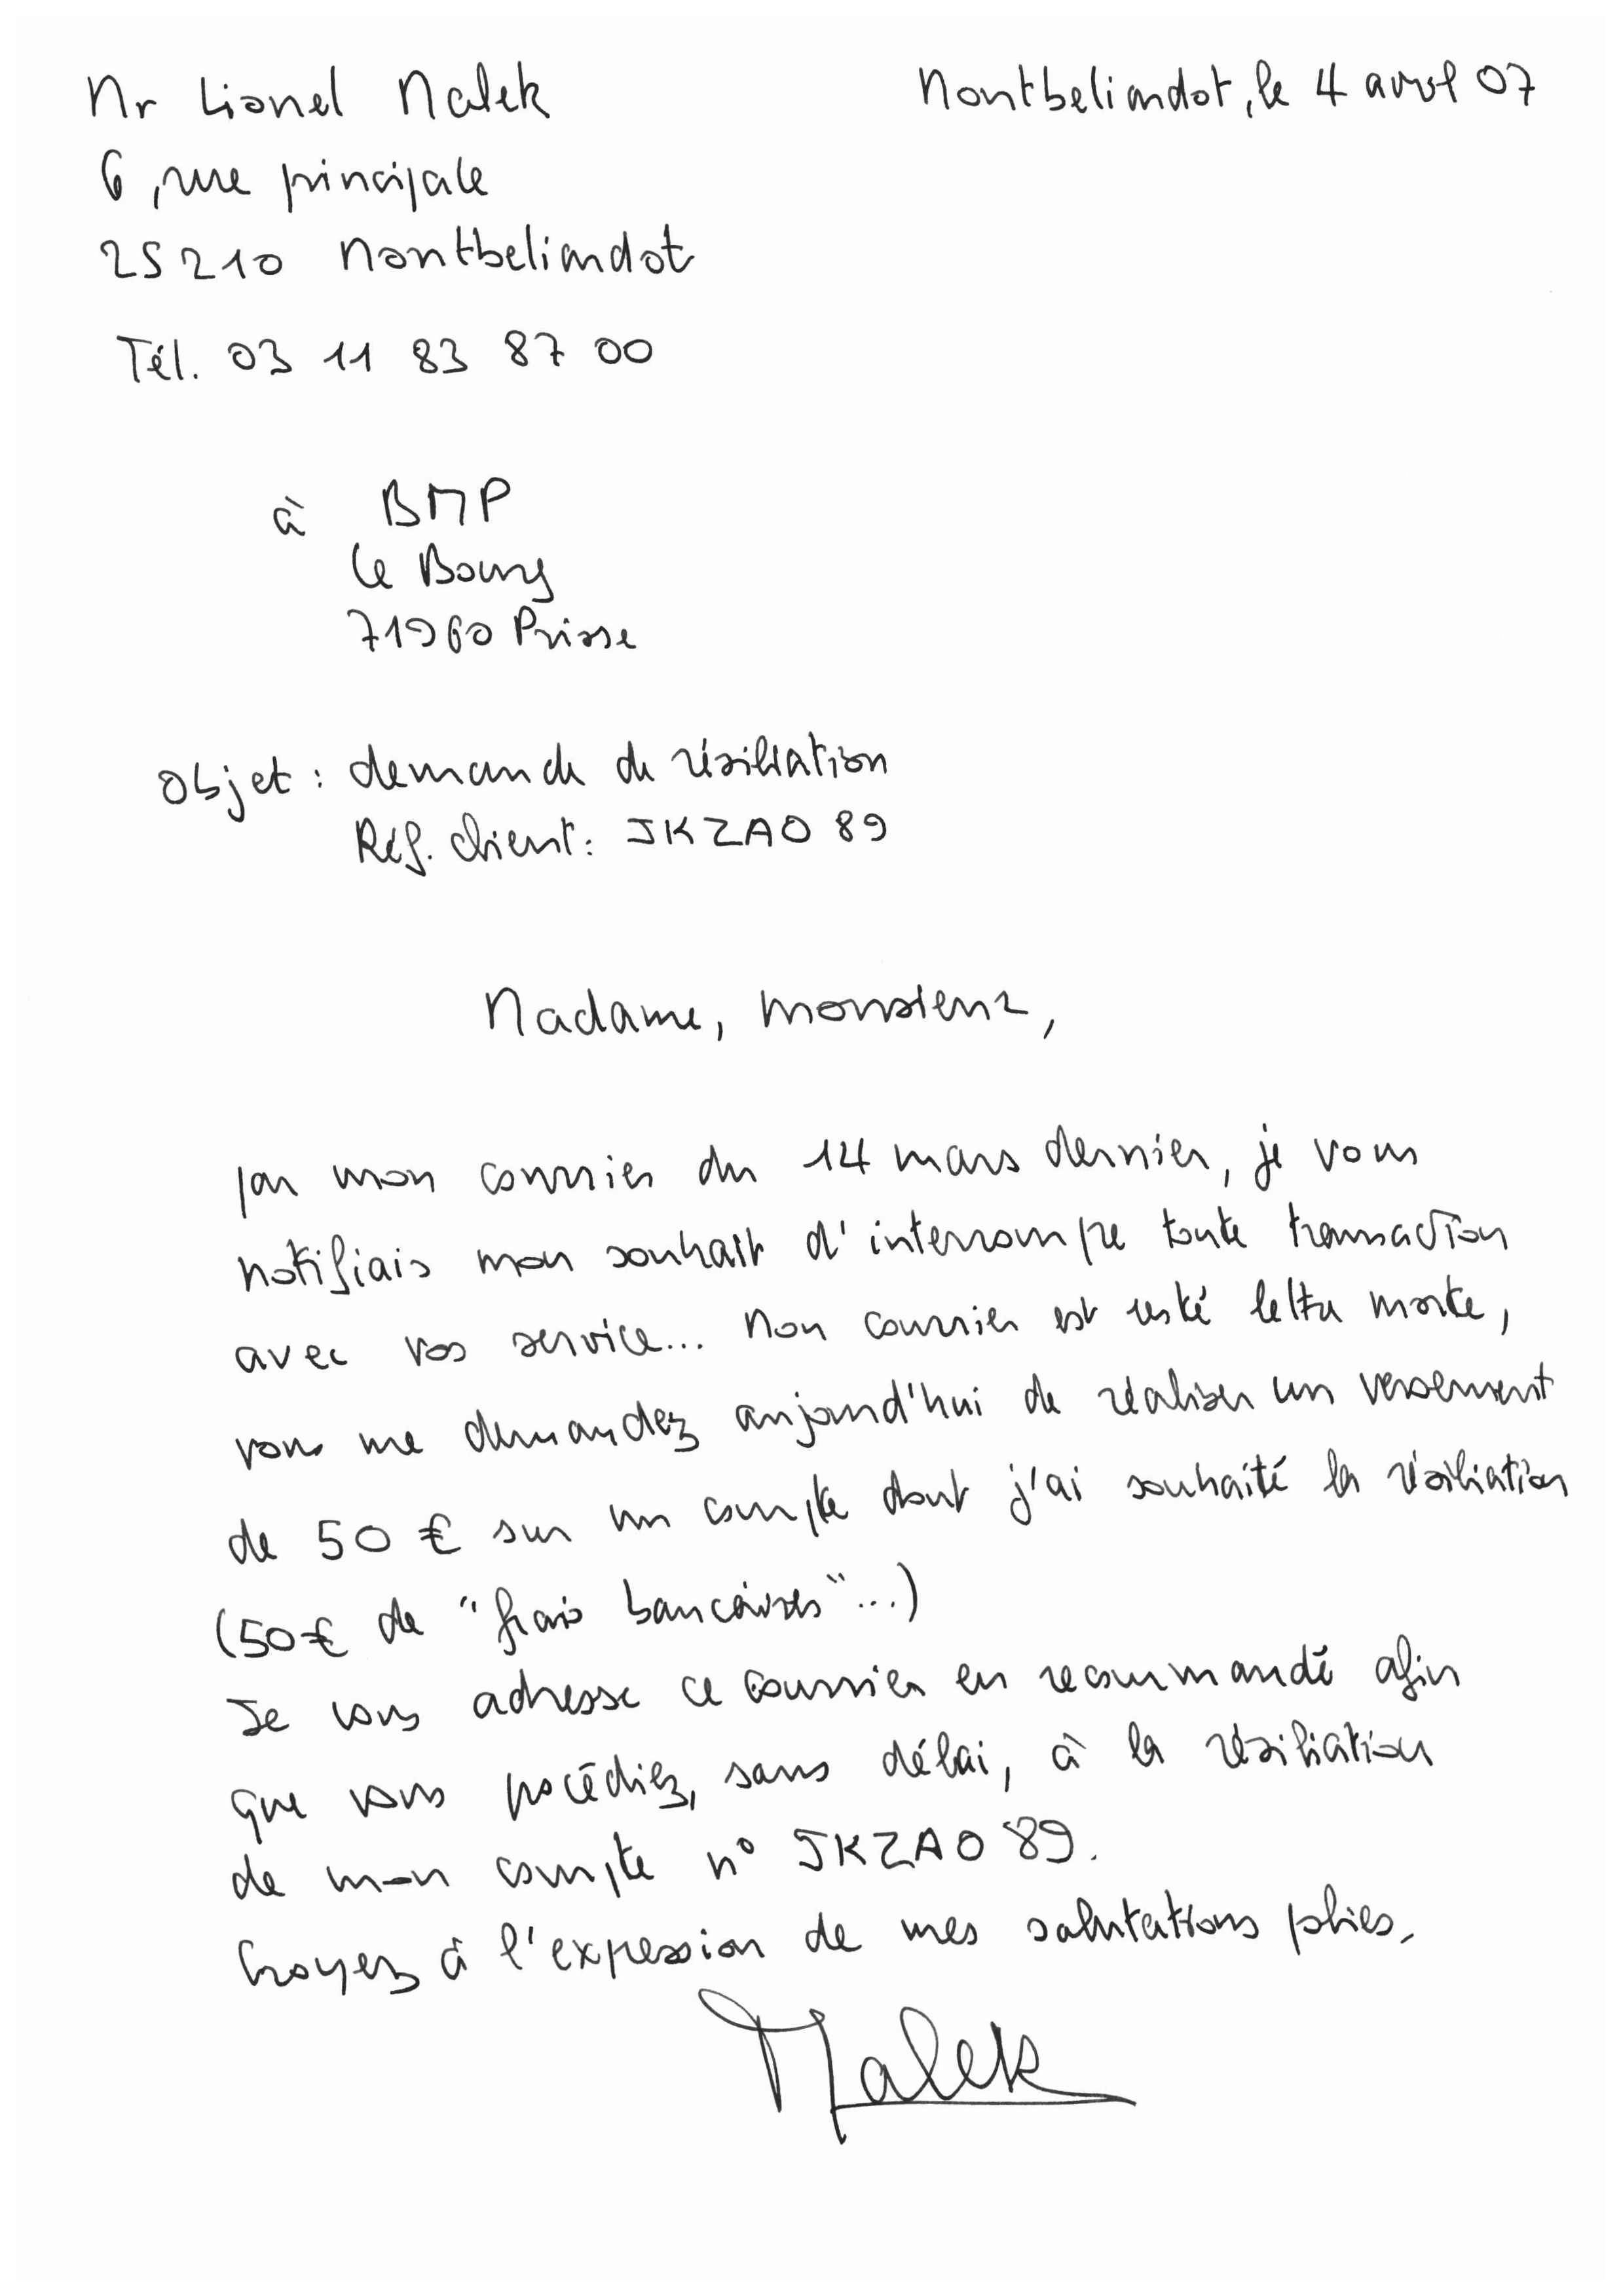 Mr Lionel Malek
Montbeliardot, le 4 avril 07
6, rue principale
25210 Montbeliardot
Tél. 03 11 83 87 00
à BMP
Le Bourg
71960 Prisse
Objet : demande de résiliation
Réf. client : JKZAO 89
Madame, monsieur,
par mon courrier du 14 mars dernier, je vous
notifiais mon souhait d'interrompre toute transaction
avec vos service... Mon courrier est resté lettre morte,
vous me demandez aujourd'hui de réaliser un versement
de 50 € sur un compte dont j'ai souhaité la résiliation
(50 € de "frais bancaires"...)
Je vous adresse ce courrier en recommandé afin
que vous procédiez, sans délai, à la résiliation
de mon compte n° JKZAO 89.
Croyez à l'expression de mes salutations polies.
Malek